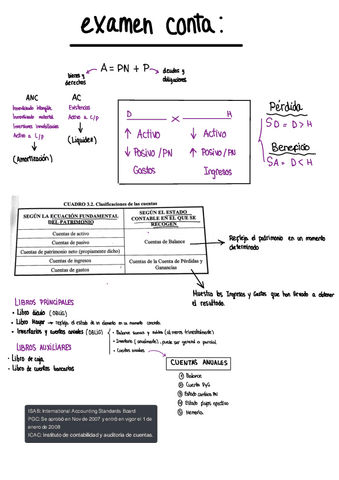 examen conta:
A = PN + P
bienes y
derechos
deudas y
obligaciones
ANC
Inmovilizado intangible
Inmovilizado material
Inversiones inmobiliarias
Activo a L/p
(Amortización)
AC
Existencias
Activo a C/p
(Liquidez)
D H
↑ Activo ↓ Activo
↓ Pasivo/PN ↑ Pasivo/PN
Gastos Ingresos
Pérdida
SD = D > H
Beneficio
SA = D < H
CUADRO 3.2. Clasificaciones de las cuentas
SEGÚN LA ECUACIÓN FUNDAMENTAL
DEL PATRIMONIO
SEGÚN EL ESTADO
CONTABLE EN EL QUE SE
RECOGEN
Cuentas de activo
Cuentas de pasivo
Cuentas de patrimonio neto (propiamente dicho)
Cuentas de Balance
Cuentas de ingresos
Cuentas de gastos
Cuentas de la Cuenta de Pérdidas y
Ganancias
Refleja el patrimonio en un momento
determinado
Muestra los Ingresos y Gastos que han llevado a obtener
el resultado.
LIBROS PRINCIPALES
• Libro diario (OBLIG)
• Libro Mayor → refleja el estado de un elemento en un momento concreto.
• Inventarios y cuentas anuales (OBLIG)
• Balance sumas y saldos (al menos trimestralmente)
• Inventario (anualmente), puede ser general o parcial.
• Cuentas anuales
LIBROS AUXILIARES
• Libro de caja.
• Libro de cuentas bancarias
CUENTAS ANUALES
① Balance
② Cuenta PyG
③ Estado cambios PN
④ Estado flujos efectivo
⑤ Memoria.
ISAB: International Accounting Standards Board
PGC: Se aprobó en Nov de 2007 y entró en vigor el 1 de
enero de 2008
ICAC: Instituto de contabilidad y auditoría de cuentas.